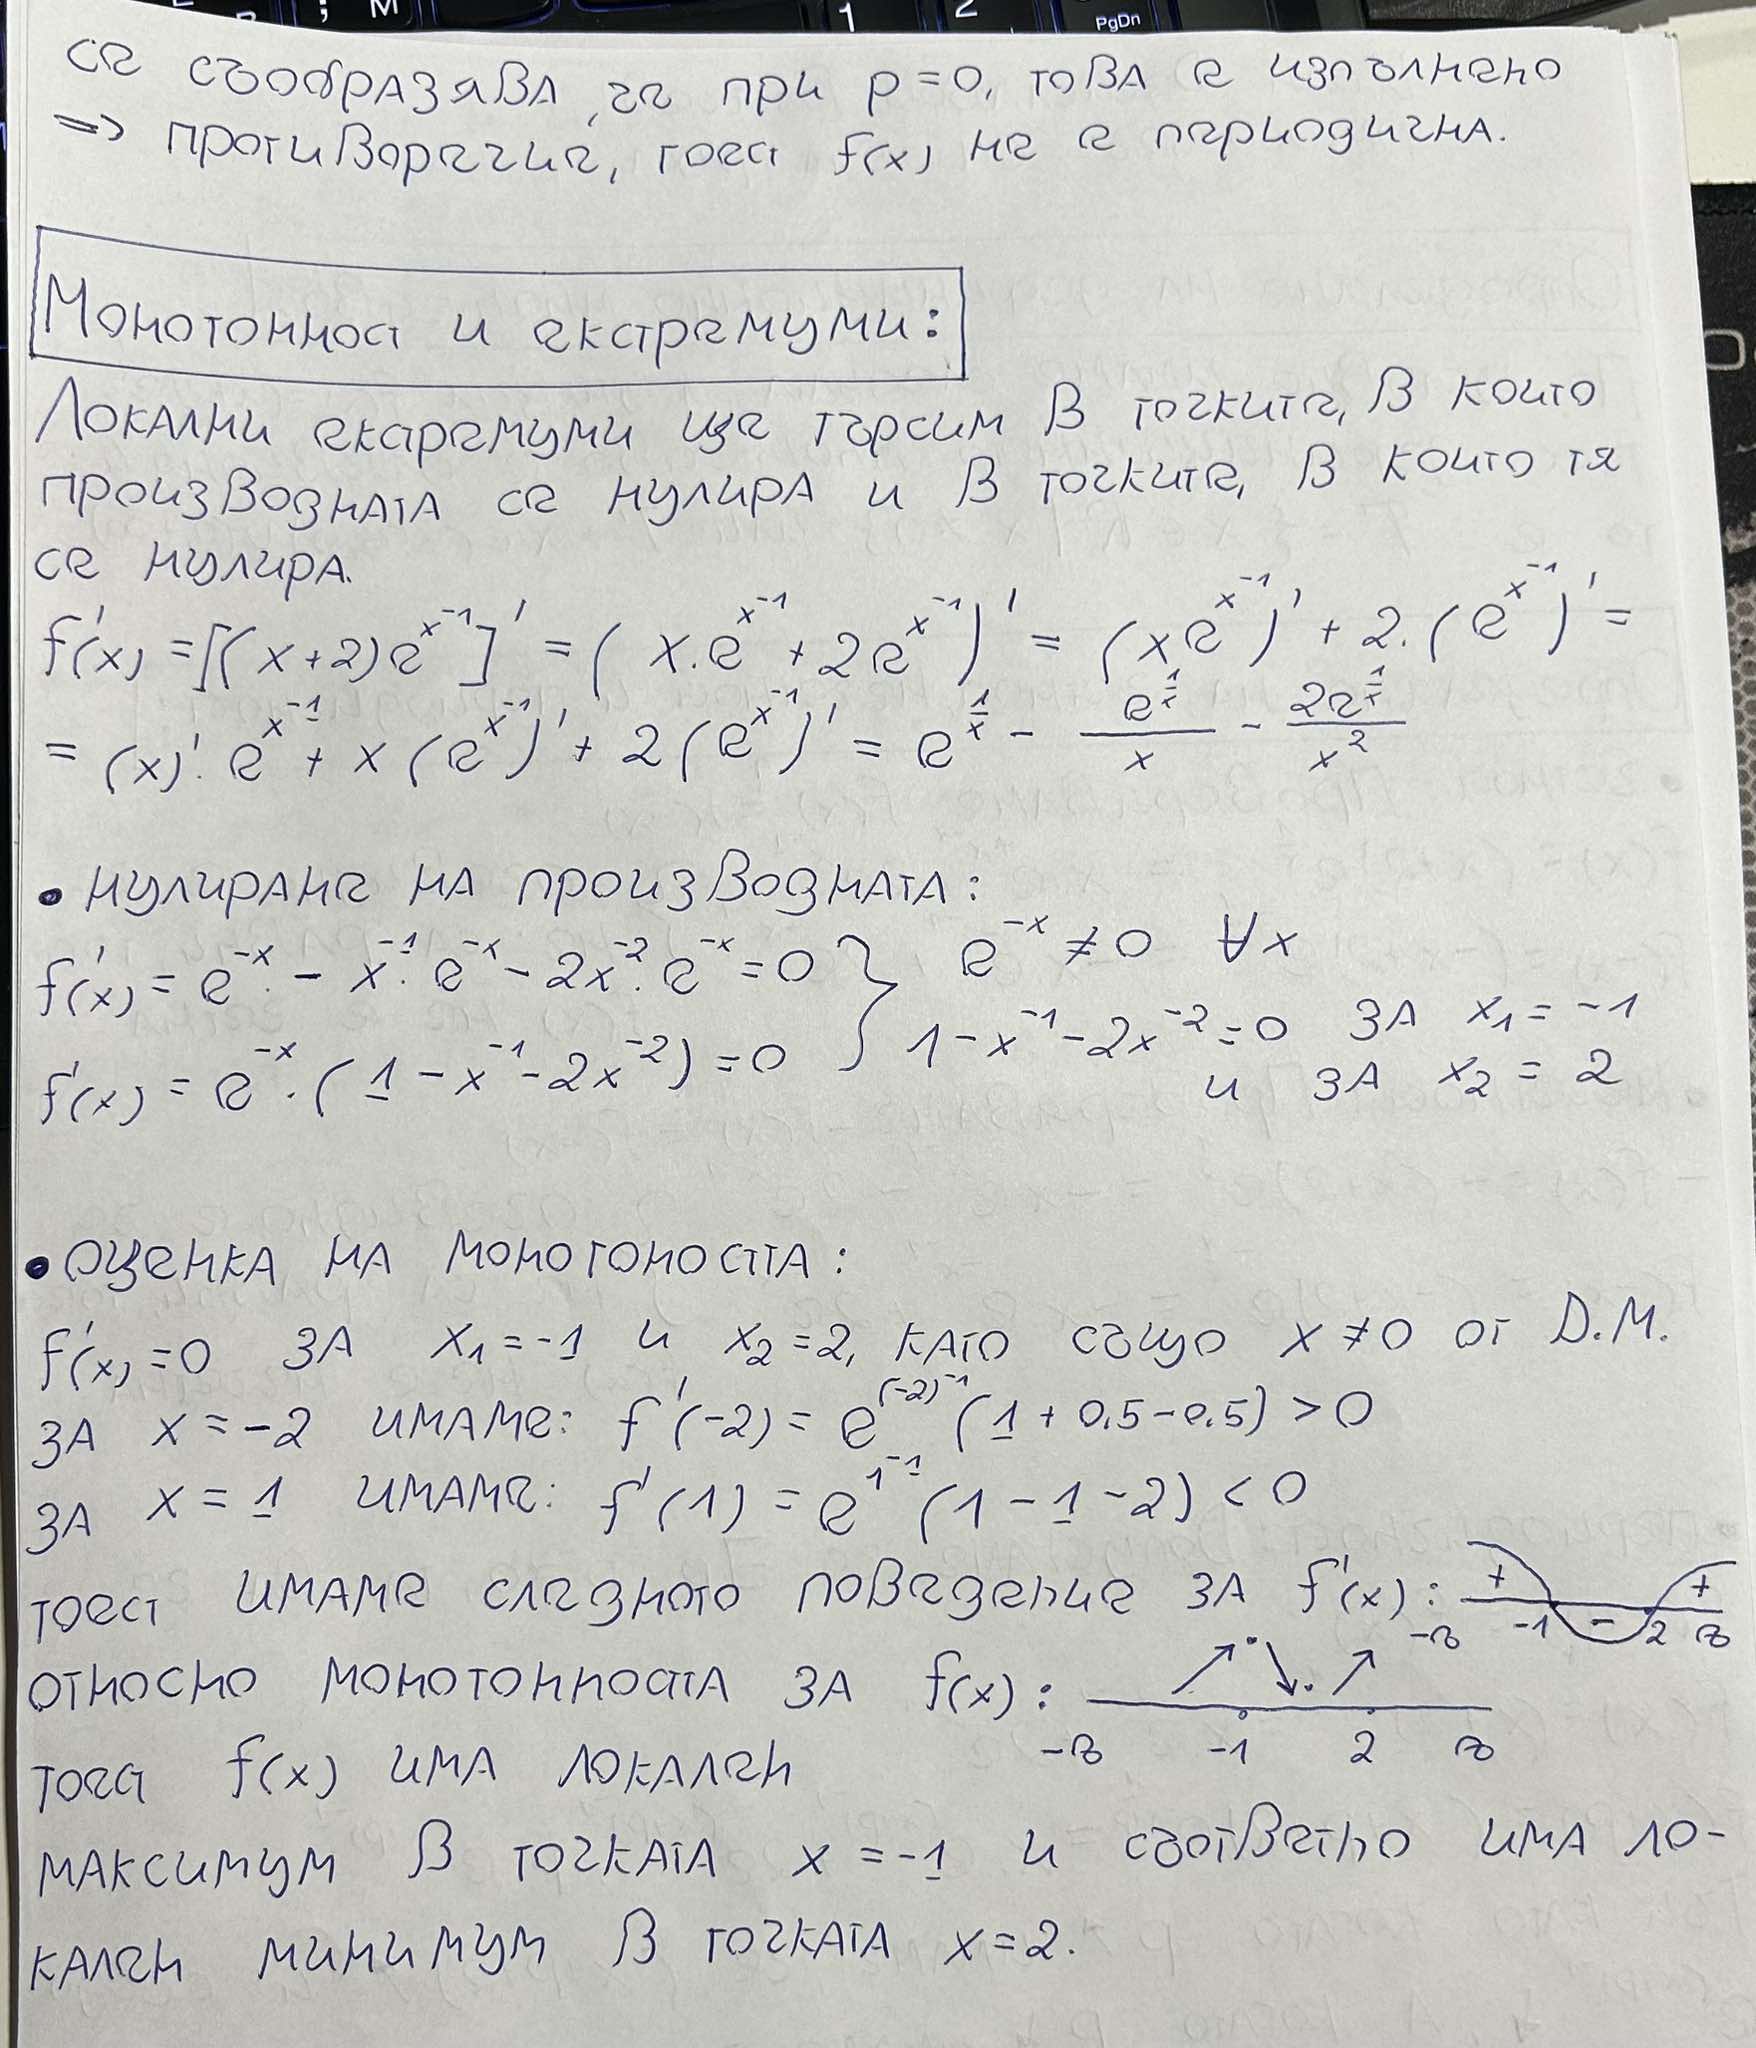 M
1
2
PgDn
се съобразява, че при p = 0, това е изпълнено
=> противоречие, тоест f(x) не е периодична.
Монотонност и екстремуми:
Локални екстремуми ще търсим в точките, в които
производната се нулира и в точките, в които тя
се нулира.
f'(x) = [(x+2)e^{x^{-1}}]' = (x.e^{x^{-1}} + 2e^{x^{-1}})' = (xe^{x^{-1}})' + 2.(e^{x^{-1}})' =
= (x)'.e^{x^{-1}} + x(e^{x^{-1}})' + 2(e^{x^{-1}})' = e^{\frac{1}{x}} - \frac{e^{\frac{1}{x}}}{x} - \frac{2e^{\frac{1}{x}}}{x^2}
• нулиране на производната:
f'(x) = e^{-x}. - x^{-1}.e^{-x} - 2x^{-2}.e^{-x} = 0 } e^{-x} ≠ 0 ∀x
f'(x) = e^{-x}.(1 - x^{-1} - 2x^{-2}) = 0 } 1 - x^{-1} - 2x^{-2} = 0 за x₁ = -1
и за x₂ = 2
• оценка на монотоността:
f'(x) = 0 за x₁ = -1 и x₂ = 2, като също x ≠ 0 от D.M.
за x = -2 имаме: f'(-2) = e^{(-2)^{-1}}(1 + 0.5 - 0.5) > 0
за x = 1 имаме: f'(1) = e^{1^{-1}}(1 - 1 - 2) < 0
тоест имаме следното поведение за f'(x): + - +
-∞ -1 2 ∞
относно монотонността за f(x): ↗ ↘ ↗
-∞ -1 2 ∞
тоест f(x) има локален
максимум в точката x = -1 и съответно има ло-
кален минимум в точката x = 2.